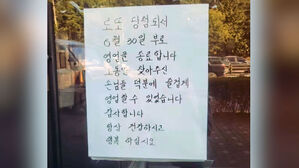 로또 당첨되서
6월 30일 부로
영업을 종료합니다
그동안 찾아주신
손님들 덕분에 즐겁게
영업할수 있었습니다
감사합니다
항상 건강하시고
행복 하십시오